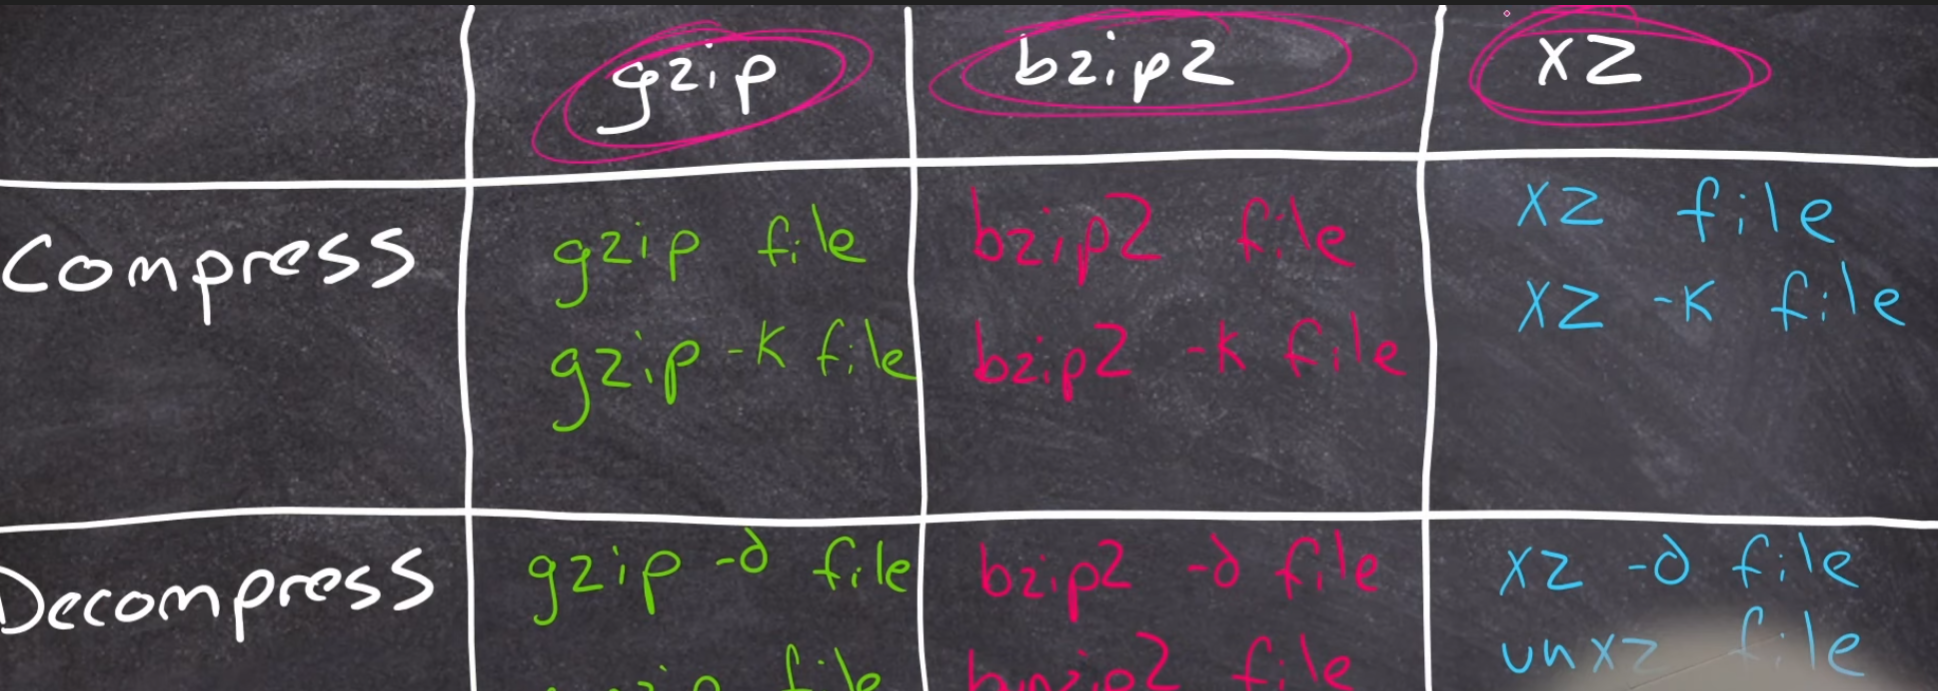 gzip bzip2 xz
Compress
gzip file
gzip -k file
bzip2 file
bzip2 -k file
xz file
xz -k file
Decompress
gzip -d file
file
bzip2 -d file
file
xz -d file
unxz file